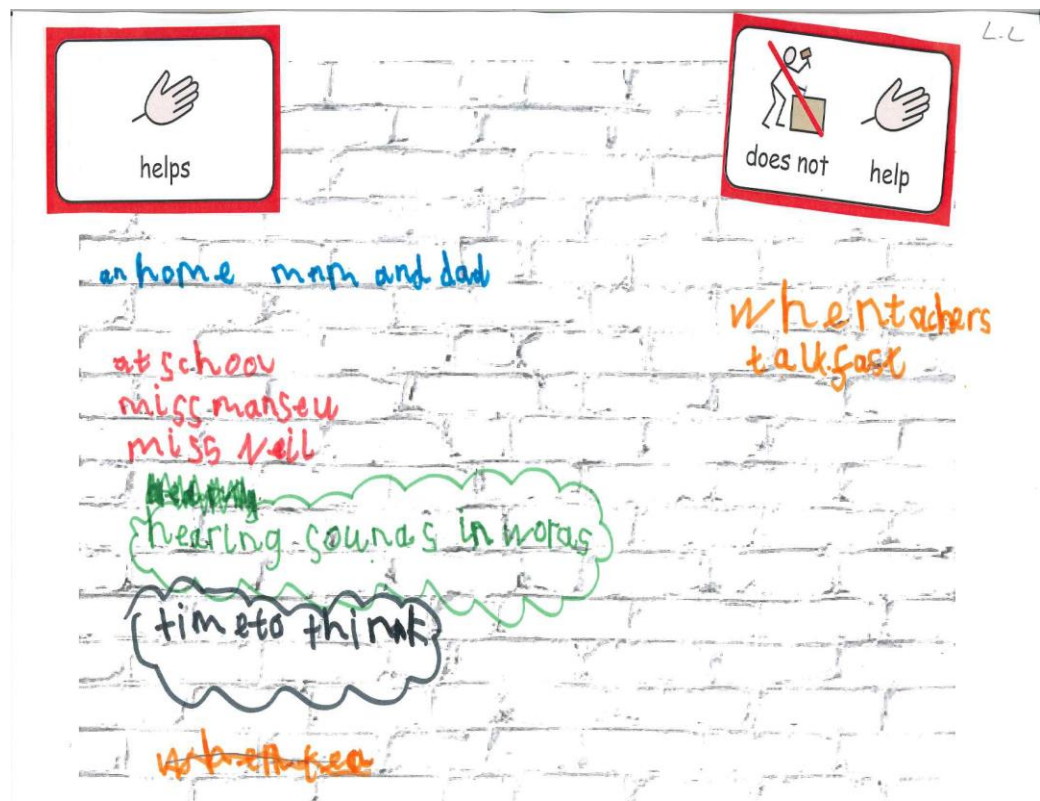 L.L
helps
does not help
an home mnm and dad
at school
miss mansell
miss Neil
hearing sounds in words
time to think
when tachers
talk fast